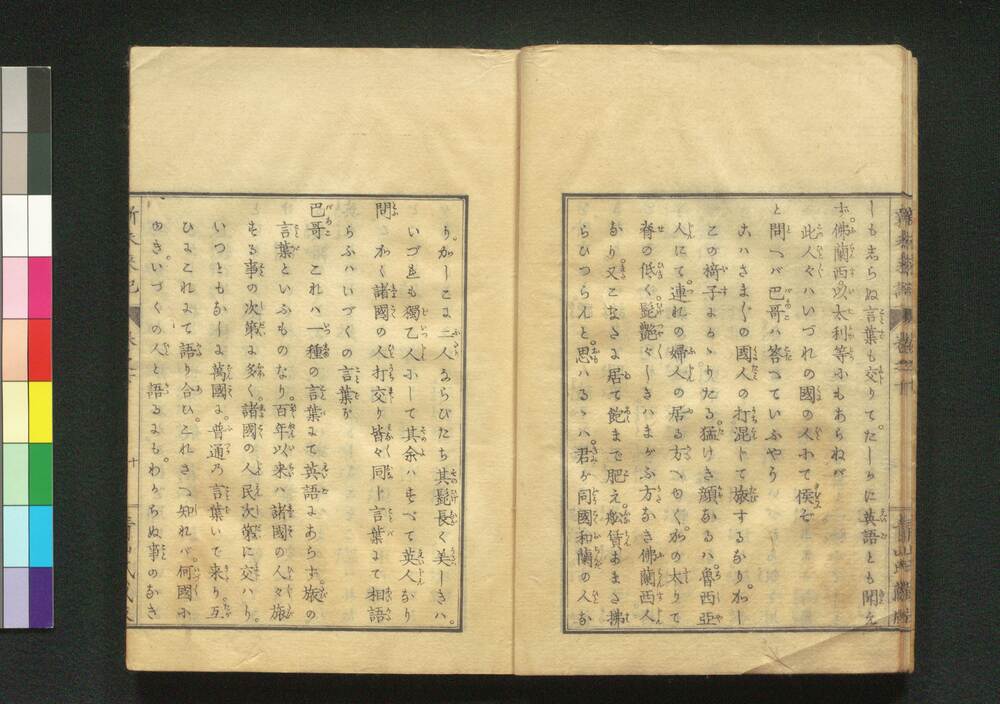 しもしらぬ言葉も交りて。たしかに英語とも聞え
ず。佛蘭西以太利等にもあらねバ
此人々ハいづれの國の人にて候ぞ
と問へバ巴哥ハ答へていふやう
こハさま〴〵の國人の打混じて旅するなり。かし
この椅子によりたる。猛けき顔なるハ魯西亞
人にて。連れの婦人の居る方へゆくかの太りて
脊の低く髭艶々しきハまがふ方なき佛蘭西人
なり又こなたに居て飽まで肥え。舩賃あまさ拂
らひつらんと思ハるゝハ。君が同國和蘭の人な
り。かしこに二人ならびたち其髭長く美しきハ。
いづれも獨乙人にして其余ハすべて英人なり
問 かく諸國の人打交り皆々同じ言葉にて相語
らふハいづくの言葉ぞ
巴哥 これハ一種の言葉にて英語にあらず。旅の
言葉といふものなり。百年以来ハ諸國の人々旅
する事の次第に多く。諸國の人民次第に交ハり。
いつともなしに萬國に。普通の言葉いで来り。互
ひにこれにて語り合ひ。これさへ知れバ。何國に
ゆきいづくの人と語るにもわからぬ事のなき
新未来記
十
青山氏蔵